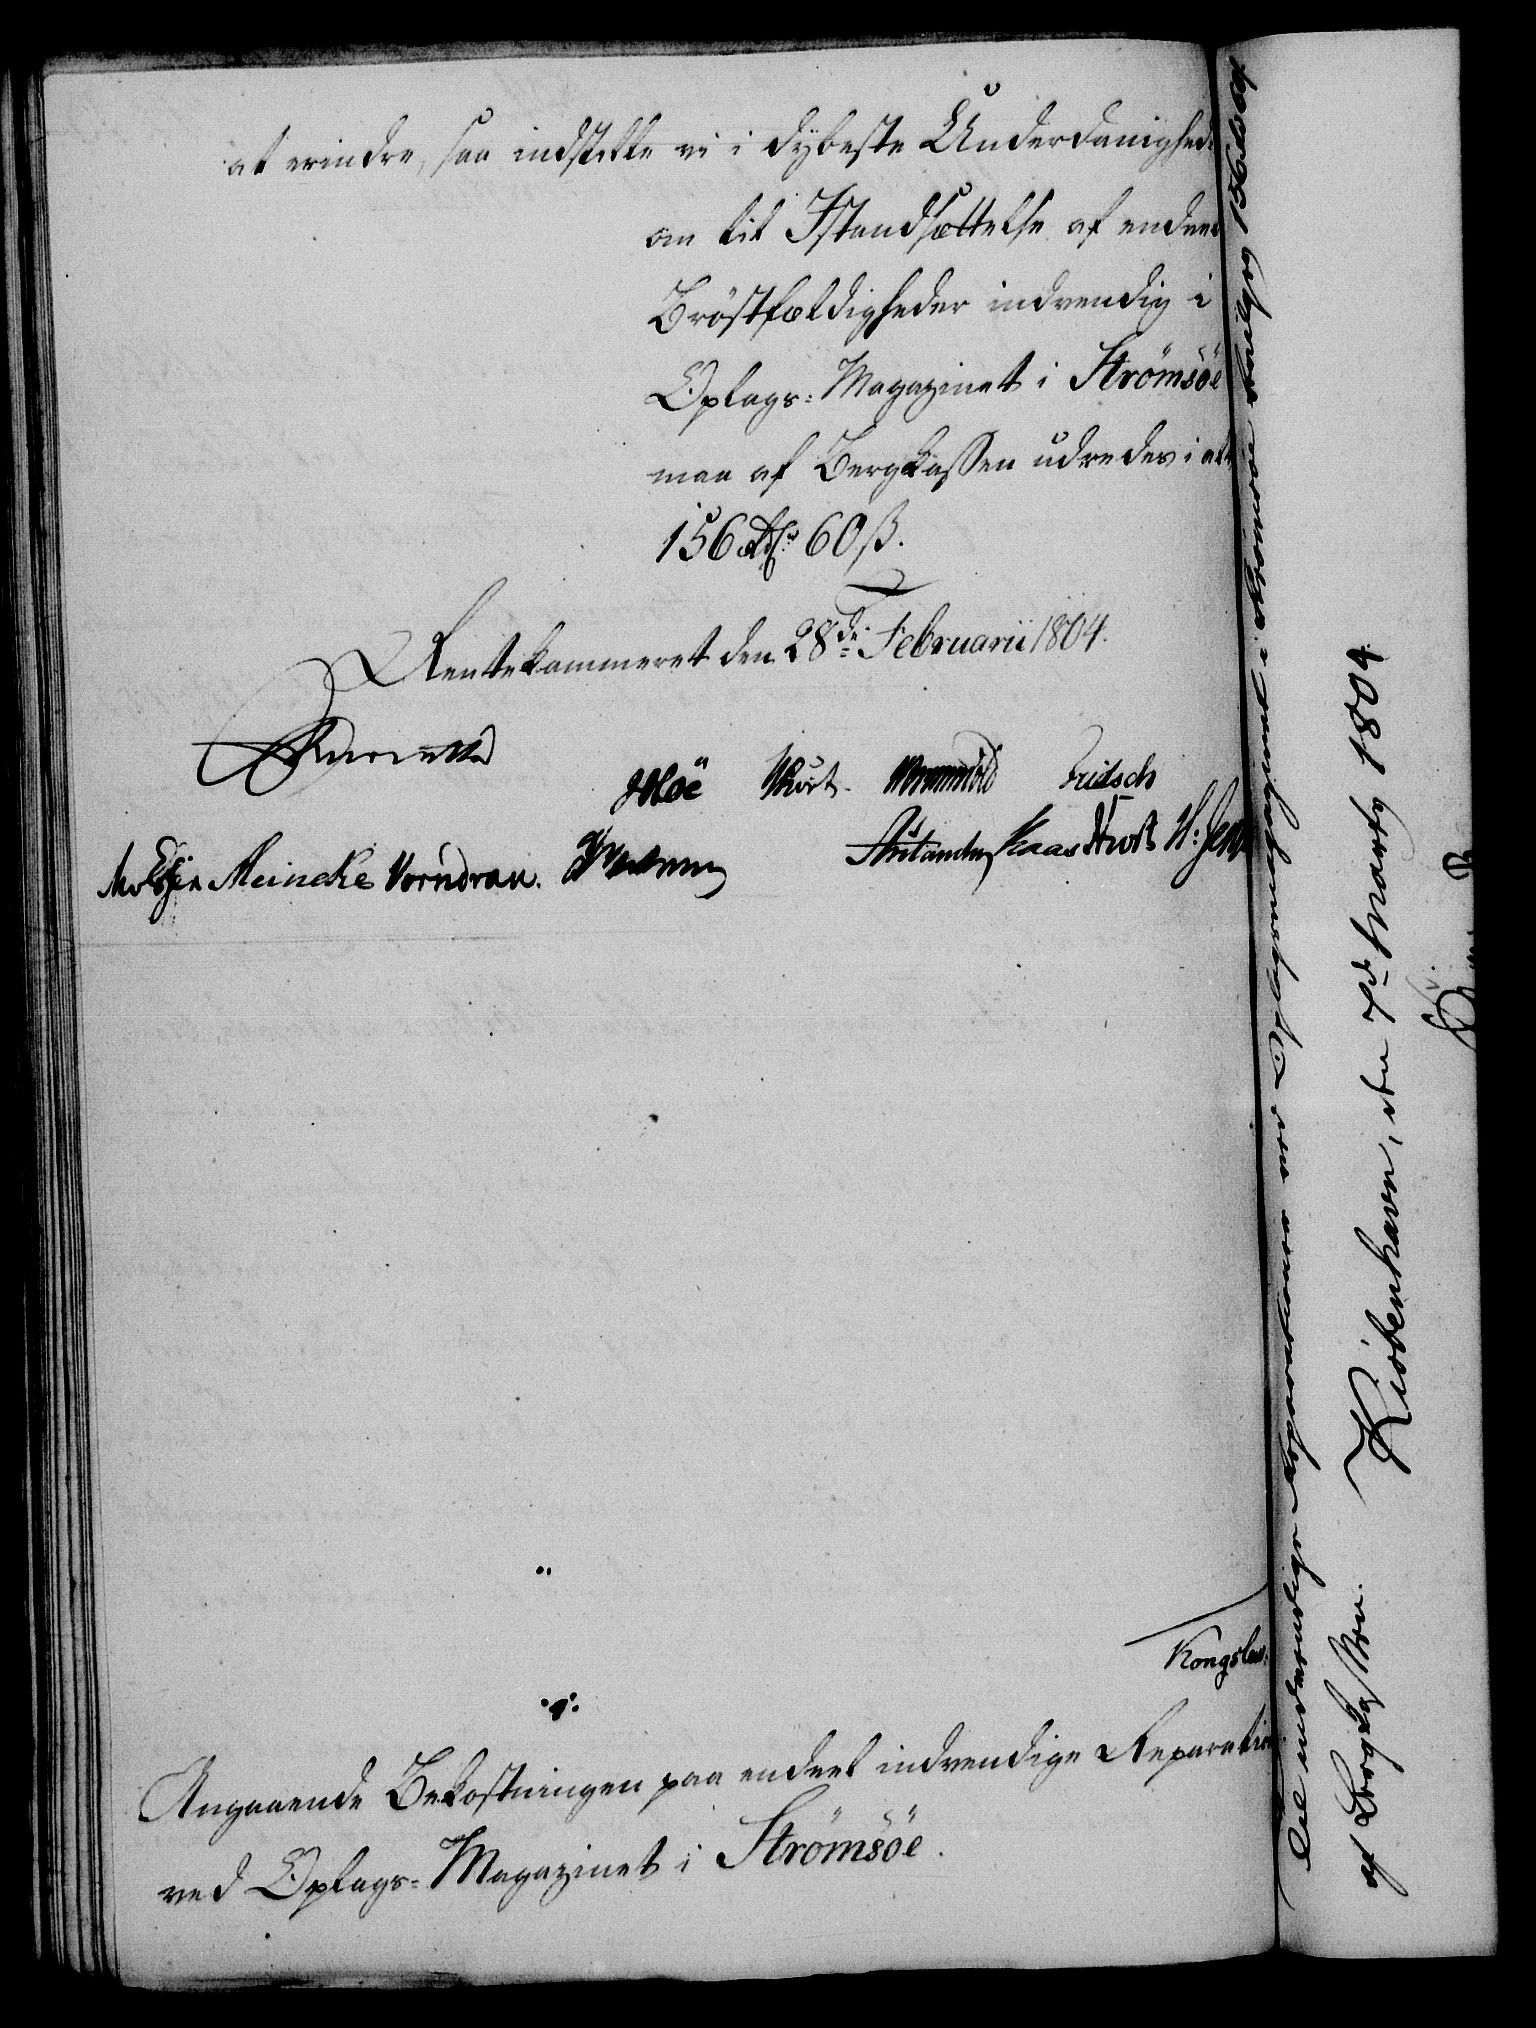 at erindre, saa indstille vi i dybeste Underdanighed:
om til Istandsættelse af endeel
Bröstfældigheder indvendig i
Oplags-Magazinet i Strömsöe
maa af Bergkassen udredes i alt
156 Rdlr 60 ß.
Rentekammeret den 28de Februarii 1804.
Hoë Wurt. Wormskiold Fritsch
Meincke Vorndran. Kaas
Kongsber:
Angaaende Bekostningen paa endeel indvendige Reparation
ved Oplags-Magazinet i Strömsöe.
Til indvendige Reparationer ved Oplagsmagazinet i Strömsöe bevilges 156 rd 60 ß
af Bergkassen.
Kiöbenhavn, den 7de Marty 1804.